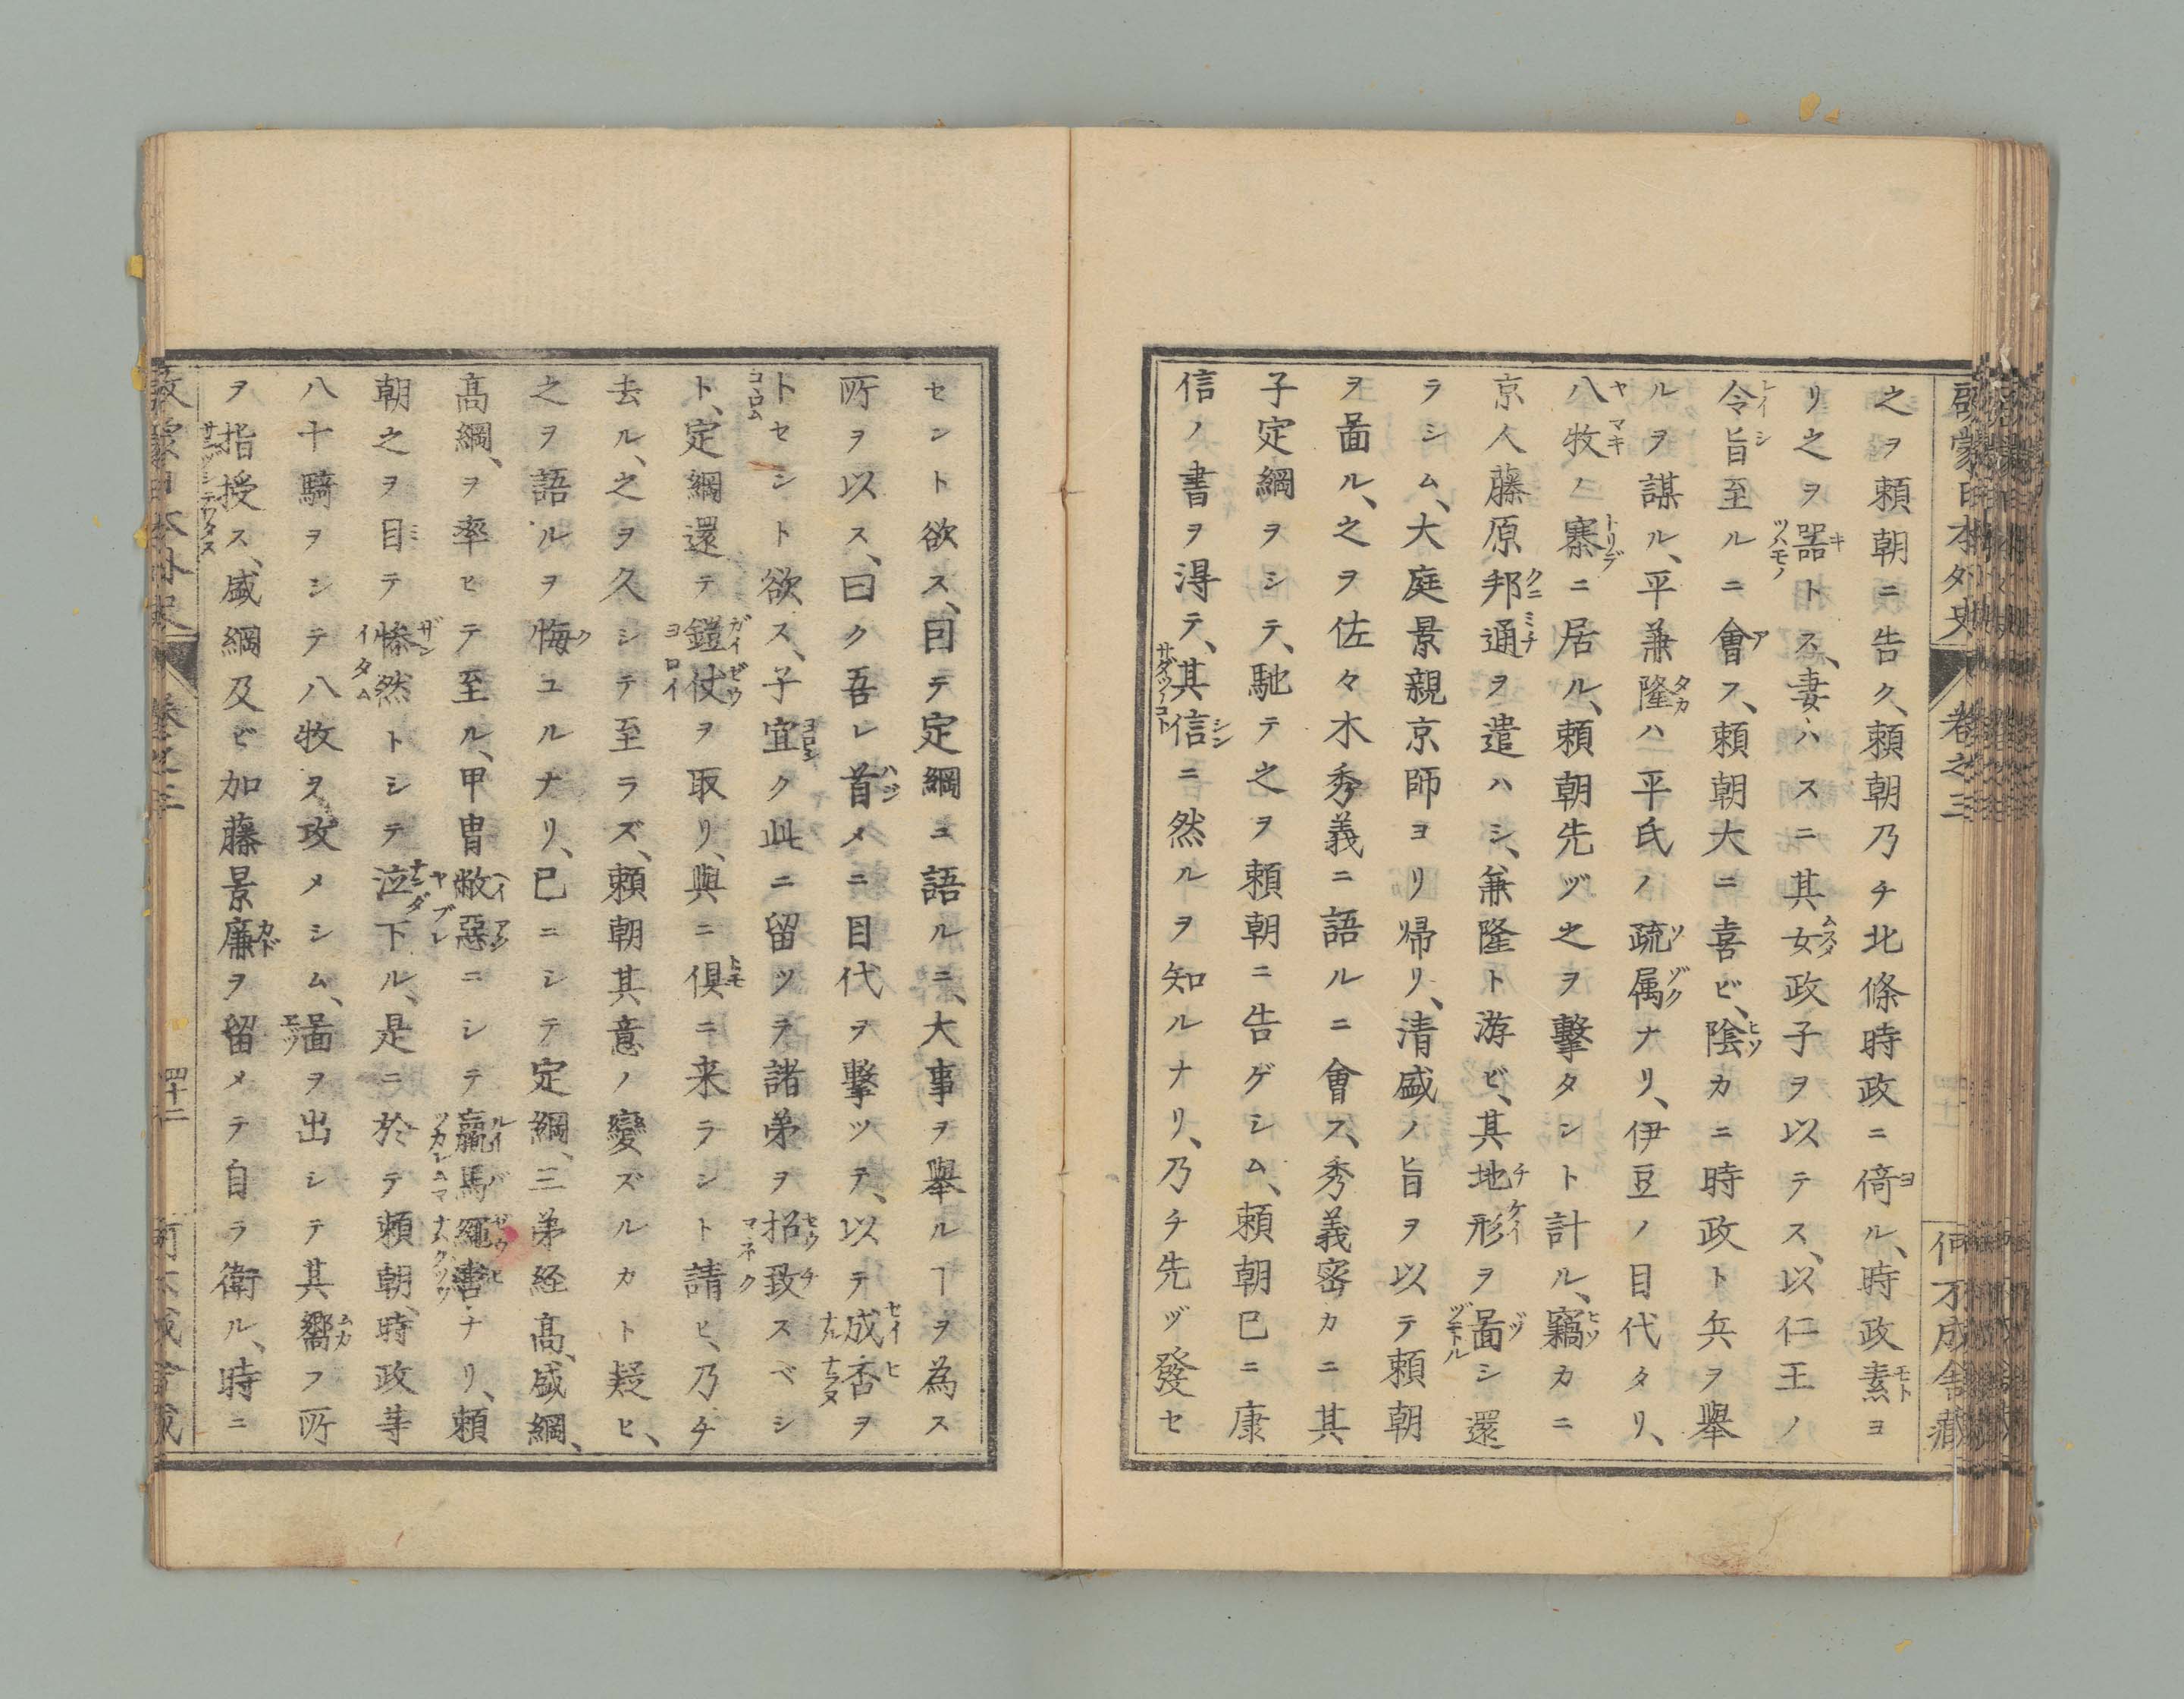 啓蒙日本外史 卷之三 何不成舎藏
之ヲ頼朝ニ告ク、頼朝乃チ北條時政ニ倚ル、時政素ヨ
リ之ヲ器トス、妻ハスニ其女政子ヲ以テス、以仁王ノ
令旨至ルニ會ス、頼朝大ニ喜ビ、陰カニ時政ト兵ヲ舉
ルヲ謀ル、平兼隆ハ平氏ノ疏属ナリ、伊豆ノ目代タリ、
八牧ノ寨ニ居ル、頼朝先ヅ之ヲ擊タント計ル、竊カニ
京人藤原邦通ヲ遣ハシ、兼隆ト游ビ、其地形ヲ啚シ還
ラシム、大庭景親京師ヨリ帰リ、清盛ノ旨ヲ以テ頼朝
ヲ啚ル、之ヲ佐々木秀義ニ語ルニ會ス、秀義密カニ其
子定綱ヲシテ、馳テ之ヲ頼朝ニ告ゲシム、頼朝已ニ康
信ノ書ヲ淂テ、其信ニ然ルヲ知ルナリ、乃チ先ヅ發セ
セント欲ス、因テ定綱ニ語ルニ、大事ヲ舉ルヿヲ為ス
所ヲ以ス、曰ク吾レ首メニ目代ヲ擊ツテ、以テ成否ヲ
トセシト欲ス、子宜ク此ニ留ツテ諸弟ヲ招致スベシ
ト、定綱還テ鎧仗ヲ取リ、與ニ倶ニ来ラシト請ヒ、乃チ
去ル、之ヲ久シテ至ラズ、頼朝其意ノ變ズルカト疑ヒ、
之ヲ語ルヲ悔ユルナリ、已ニシテ定綱、三弟経髙、盛綱、
髙綱、ヲ率ヒテ至ル、甲冑敝惡ニシテ羸馬繩轡ナリ、頼
朝之ヲ目テ惨然トシテ泣下ル、是ニ於テ頼朝、時政䓁
八十騎ヲシテ八牧ヲ攻メシム、啚ヲ出シテ其嚮フ所
ヲ指授ス、盛綱及ビ加藤景廉ヲ留メテ自ラ衛ル、時ニ
啓蒙日本外史 卷之三 四十二